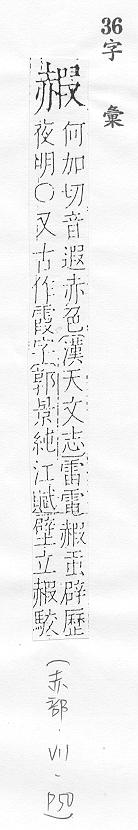 36字彙
赮
何加切音遐赤色漢天文志雷電赮䖝辟歷
夜明〇又古作霞字郭景純江賦壁立赮駮
(赤部.VII.P50)